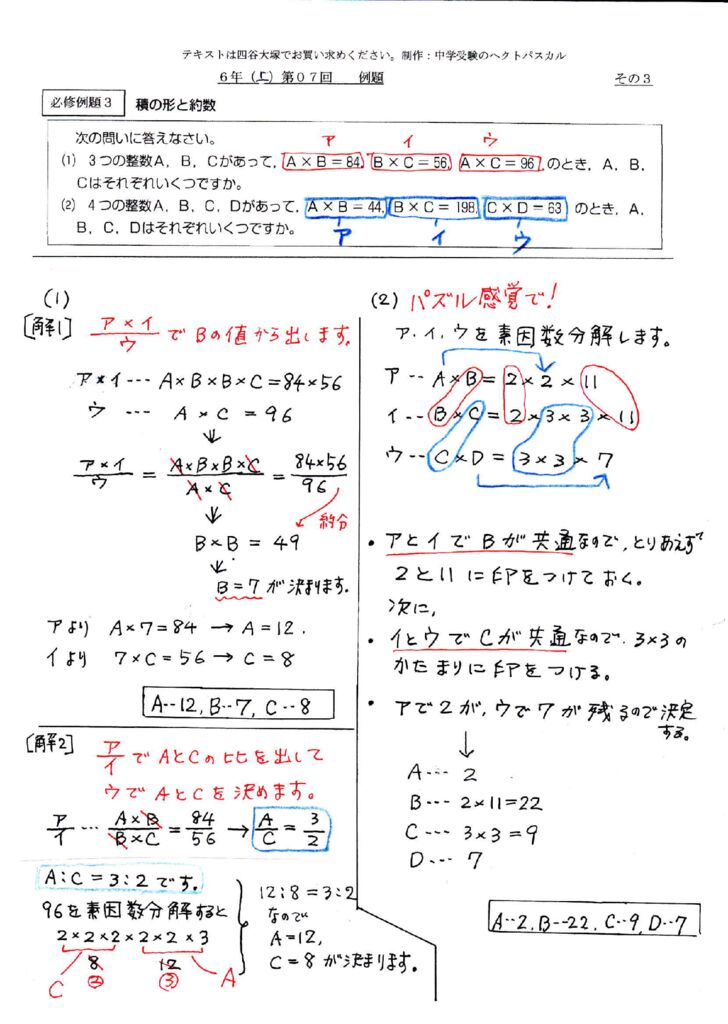 テキストは四谷大塚でお買い求めください。制作:中学受験のヘクトパスカル
6年(上)第07回 例題 その3
必修例題3 積の形と約数
次の問いに答えなさい。
ア イ ウ
(1) 3つの整数A,B,Cがあって,A×B=84,B×C=56,A×C=96,のとき,A,B,
Cはそれぞれいくつですか。
(2) 4つの整数A,B,C,Dがあって,A×B=44,B×C=198,C×D=63 のとき,A,
B,C,Dはそれぞれいくつですか。
ア イ ウ
(1)
[解1] ア×イ/ウ でBの値から出します。
ア×イ…A×B×B×C=84×56
ウ … A×C=96
ア×イ/ウ = A×B×B×C/A×C = 84×56/96
約分
B×B=49
B=7が決まります。
アより A×7=84 → A=12.
イより 7×C=56 → C=8
A…12, B…7, C…8
[解2] ア/イ でAとCの比を出して
ウでAとCを決めます。
ア/イ … A×B/B×C = 84/56 → A/C = 3/2
A:C=3:2です。
96を素因数分解すると
2×2×2×2×2×3
8 12
C ② ③ A
12:8=3:2
なので
A=12,
C=8が決まります。
(2) パズル感覚で!
ア.イ.ウを素因数分解します。
ア‥A×B=2×2×11
イ‥B×C=2×3×3×11
ウ‥C×D=3×3×7
・アとイでBが共通なので,とりあえず
2と11に印をつけておく。
次に,
・イとウでCが共通なので.3×3の
かたまりに印をつける。
・アで2が,ウで7が残るので決定
する。
A… 2
B… 2×11=22
C… 3×3=9
D… 7
A‥2, B‥22, C‥9, D‥7